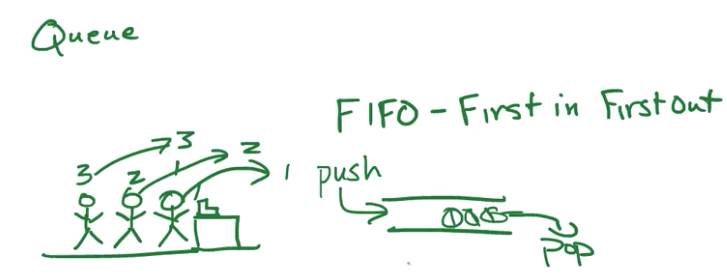 Queue
FIFO - First in First out
3 3
2 2
1 1
push
pop